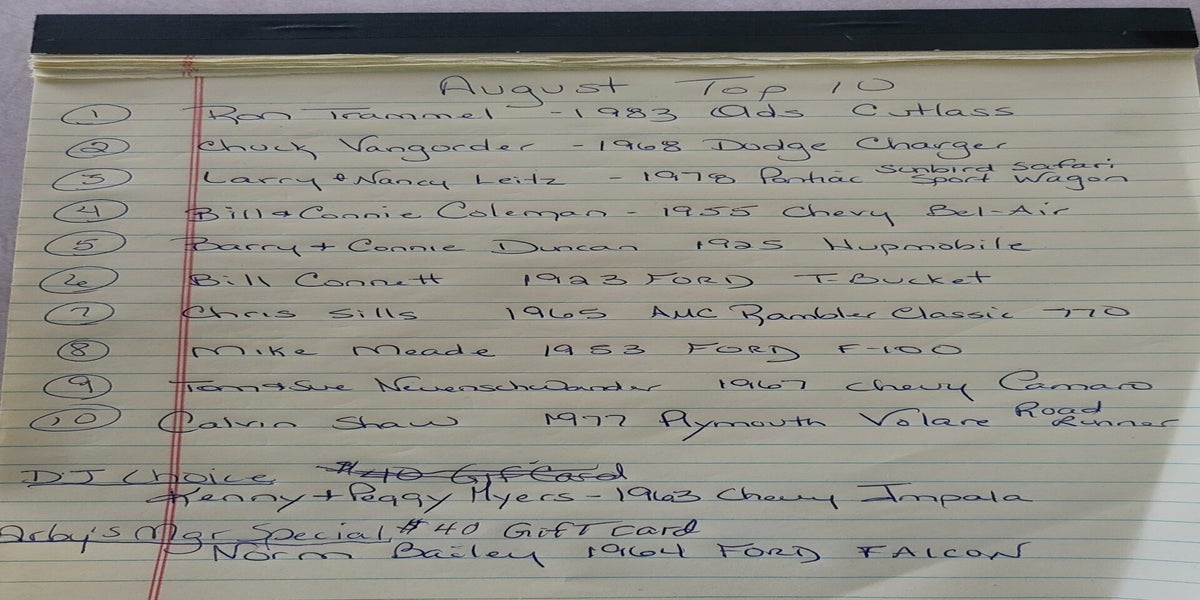 August Top 10
1 Ron Trammel - 1983 Olds Cutlass
2 Chuck Vangorder - 1968 Dodge Charger
3 Larry & Nancy Leitz - 1978 Pontiac Sunbird Safari Sport Wagon
4 Bill & Connie Coleman - 1955 Chevy Bel-Air
5 Barry + Connie Duncan 1925 Hupmobile
6 Bill Connett 1923 FORD T-Bucket
7 Chris Sills 1965 AMC Rambler Classic 770
8 Mike Meade 1953 FORD F-100
9 Tom & Sue Neuenschwander 1967 Chevy Camaro
10 Calvin Shaw 1977 Plymouth Volare Road Runner
DJ Choice $40 Gif Card
Kenny + Peggy Myers - 1963 Chevy Impala
Arby's Mgr Special, $40 Gift Card
Norm Bailey 1964 FORD FALCON